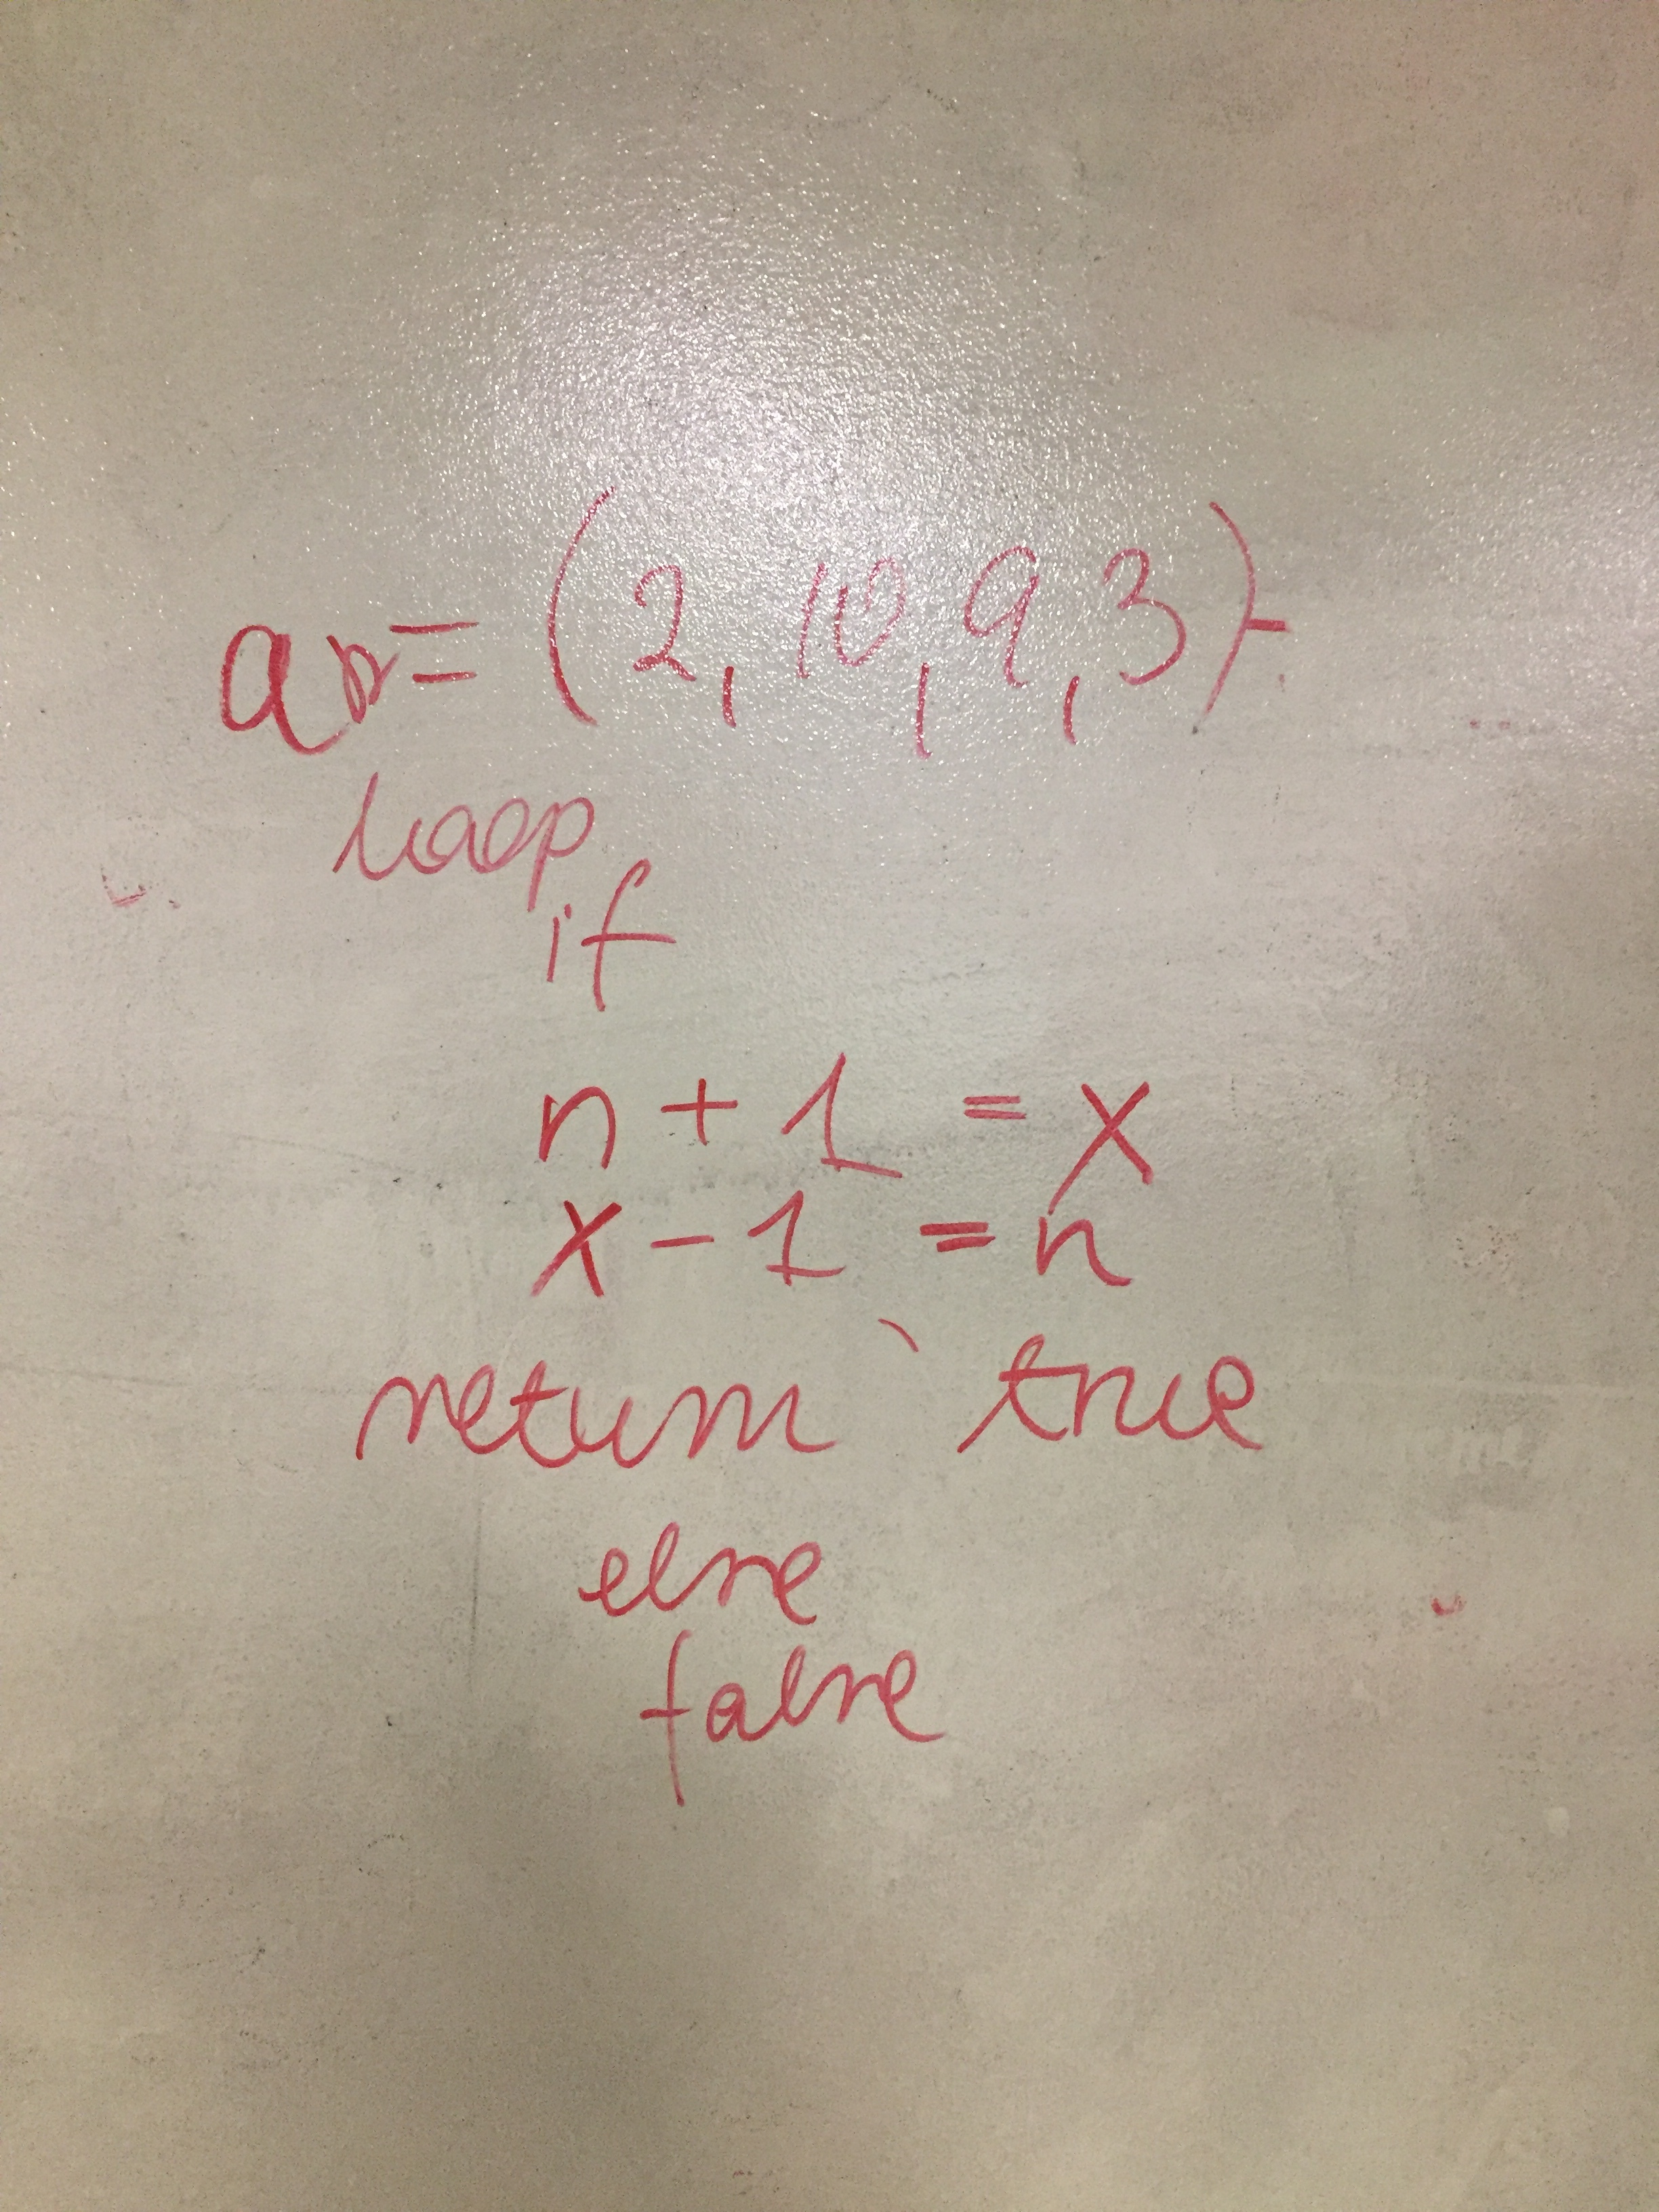 ar= (2, 10, 9, 3)
loop
if
n + 1 = x
x - 1 = n
return true
else
false